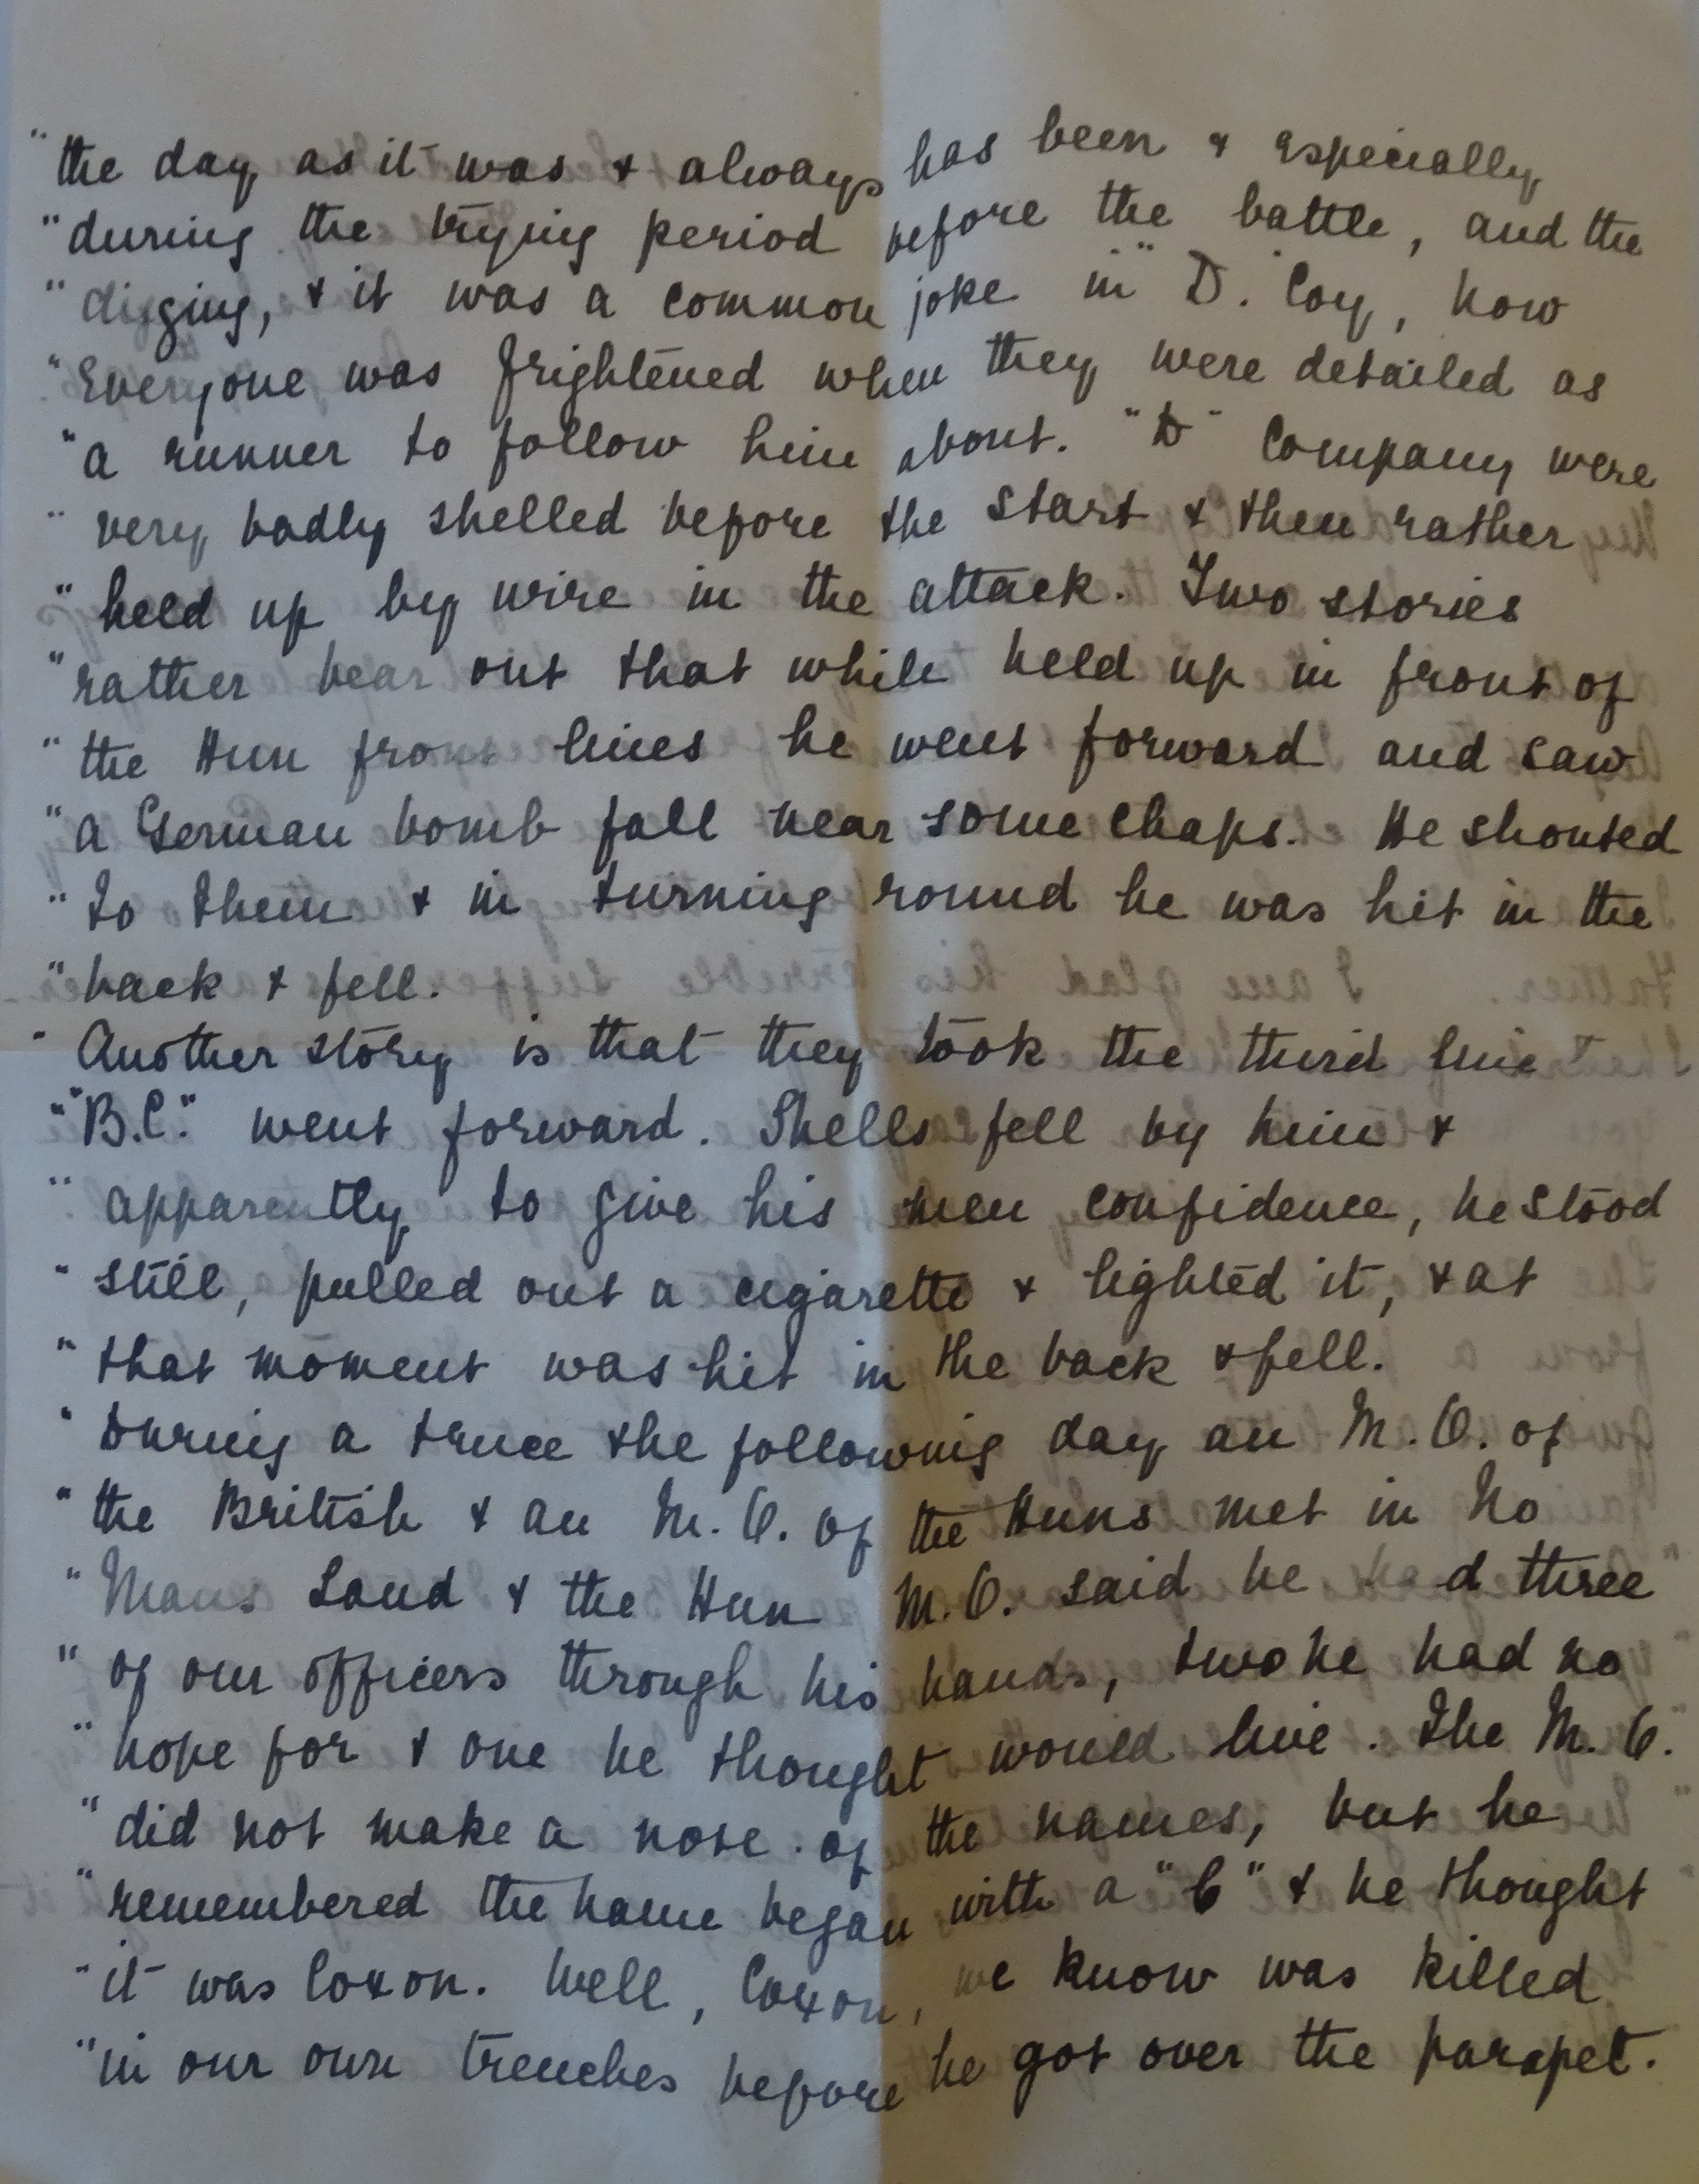 "the day as it was & always has been & especially
"during the trying period before the battle, and the
"digging, & it was a common joke in "D." Coy, how
"everyone was frightened when they were detailed as
"a runner to follow him about. "D" Company were
"very badly shelled before the start & then rather
"held up by wire in the attack. Two stories
"rather bear out that while held up in front of
"the Hun front lines he went forward and saw
"a German bomb fall near some chaps. He shouted
"to them & in turning round he was hit in the
"back & fell.
"Another story is that they took the third line
""B.C." went forward. Shells fell by him &
"apparently to give his men confidence, he stood
"still, pulled out a cigarette & lighted it, & at
"that moment was hit in the back & fell.
"During a truce the following day an M.O. of
"the British & an M.O. of the Huns met in No
"Mans Land & the Hun M.O. said he had three
"of our officers through his hands, two he had no
"hope for & one he thought would live. The M.O.
"did not make a note of the names, but he
"remembered the name began with a "C" & he thought
"it was Coxon. Well, Coxon, we know was killed
"in our own trenches before he got over the parapet.